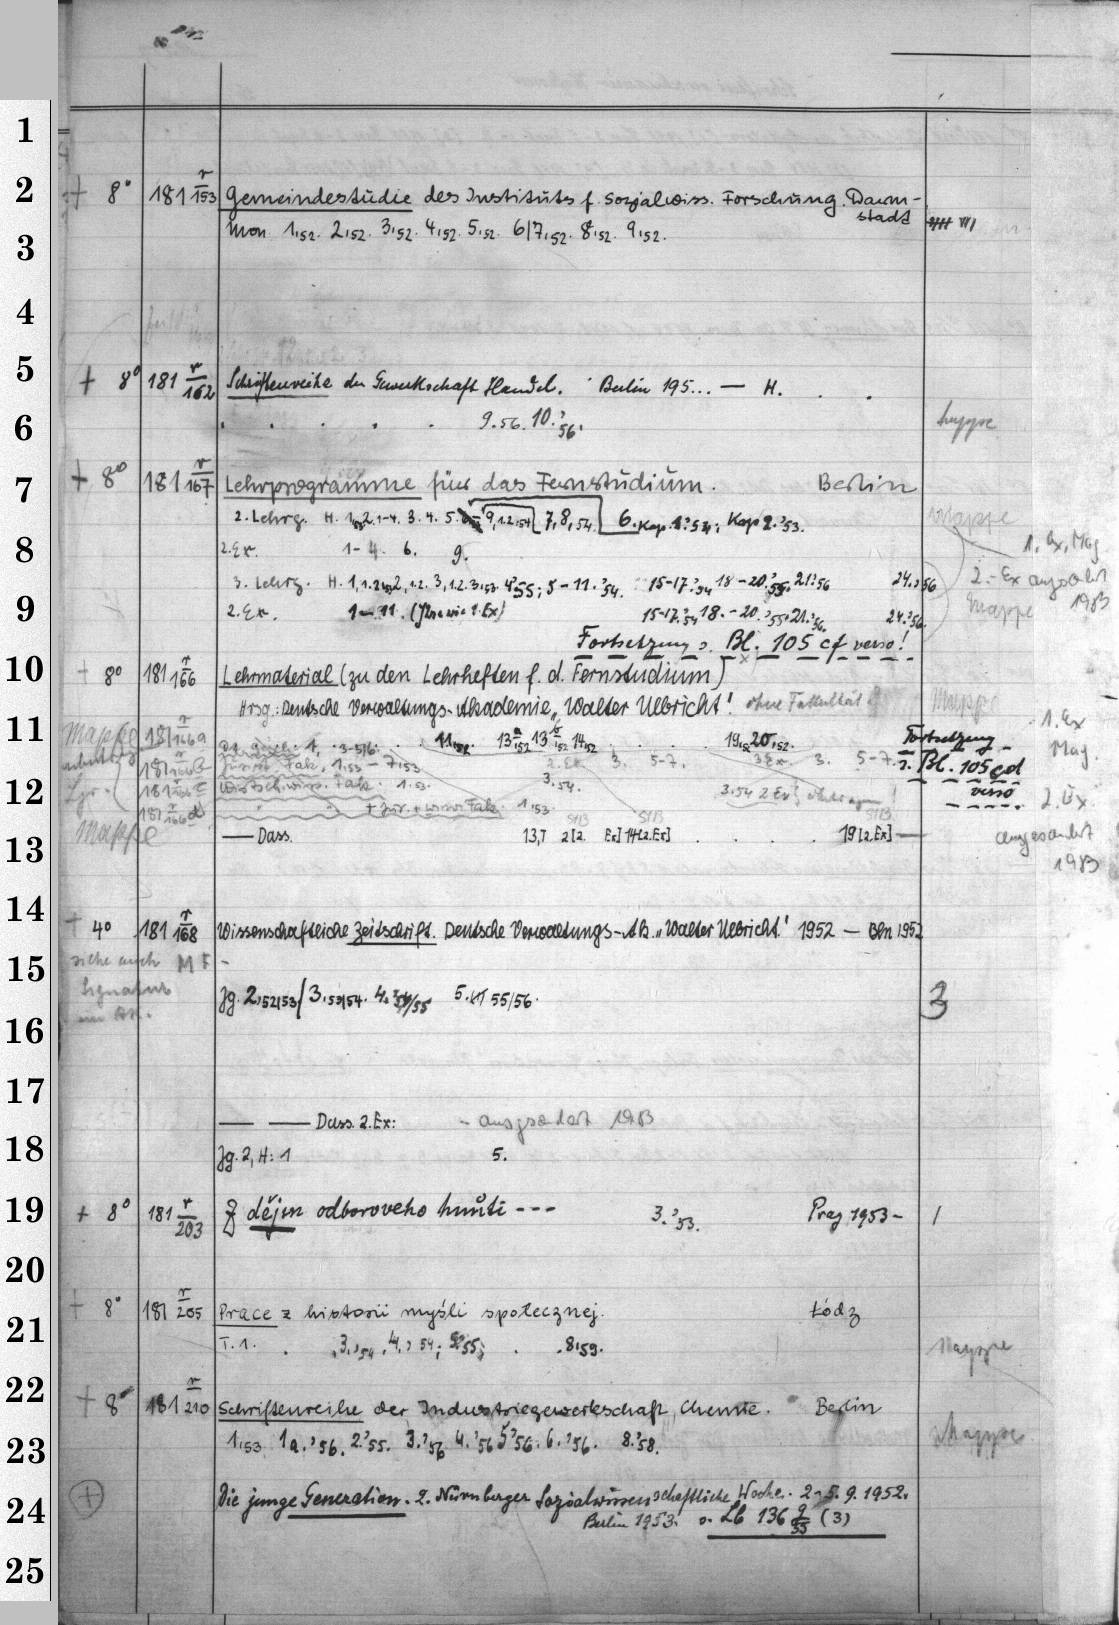 1
2 + 8° 181 r/153 Gemeindestudie des Instituts f. sozialwiss. Forschung. Darm-
stadt
3 Mon. 1,52. 2,52. 3,52. 4,52. 5,52. 6/7,52. 8,52. 9,52.
4
5 + 8° 181 r/162 Schriftenreihe der Gewerkschaft Handel. Berlin 195... — H.
6 9.56. 10.'56. Mappe
7 + 8° 181 r/167 Lehrprogramme für das Fernstudium. Berlin
2. Lehrg. H. 3. 4. 5. 9,1.2,54 7,8,54. 6. Kap. 1.'54; Kap 2.'53. Mappe
8 2. Ex. 1-4. 6. 9. 1. Ex, Mag.
3. Lehrg. H. 1,1.2 2,1.2. 3,1.2. 3,53. 4'55; 5-11.'54. 15-17.'54 18-20.'55. 21.'56 24.'56 2.-Ex ausgesondert 1983
9 2. Ex. 1-11. (Jhre wie 1. Ex) 15-17.'54 18.-20.'55. 21.'56. 24.'56. Mappe
Fortsetzung s. Bl. 105 cf verso!
10 + 8° 181 r/166 Lehrmaterial (zu den Lehrheften f. d. Fernstudium)
Hrsg.: Deutsche Verwaltungs-Akademie „Walter Ulbricht! ohne Fakultät Mappe
11 Mappe 181 r/166a 1, 3-5/6. 11,52. 13a,52 13b,52 14,52 19,52 20,52. Fortsetzung 1. Ex Mag.
181 r/166b Jurist. Fak. 1.53 - 7.53 2. Ex. 3. 5-7. 3 Ex. 3. 5-7. s. Bl. 105 cd verso
12 181 r/166c Wirtsch. wiss. Fak. 1.53. 3.54. 3.54 2 Ex. 2. Ex.
Mappe 181 r/166d + Jur. + wiwi Fak. 1.53 ausgesondert 1983
13 — Dass. 13,I 2[2. Ex] 14[2.Ex] 19[2.Ex] —
14 + 4° 181 r/168 Wissenschaftliche Zeitschrift. Deutsche Verwaltungs-Ak. „Walter Ulbricht! 1952 — Bln 1952
15 siehe auch MF
Signatur
Jg. 2,52/53 3,53/54. 4.'54/55 5. 55/56. 3
16
17
— — Dass. 2. Ex: - ausgesondert 1983
18 Jg. 2, H: 1 5.
19 + 8° 181 r/203 Z dějin odborového hnutí --- 3.'53. Prag 1953- 1
20
21 + 8° 181 r/205 Prace z historii myśli społecznej. Łódz
T. 1. 3.,54, 4.,54; 55; 8,59. Mappe
22 + 8° 181 r/210 Schriftenreihe der Industriegewerkschaft Chemie. Berlin
23 1,53 1a.'56. 2.'55. 3.'56 4.'56 5'56. 6.'56. 8.'58. Mappe
24 + Die junge Generation. 2. Nürnberger Sozialwissenschaftliche Woche. 2-5. 9. 1952.
Berlin 1953. s. Lb 136 q/35 (3)
25